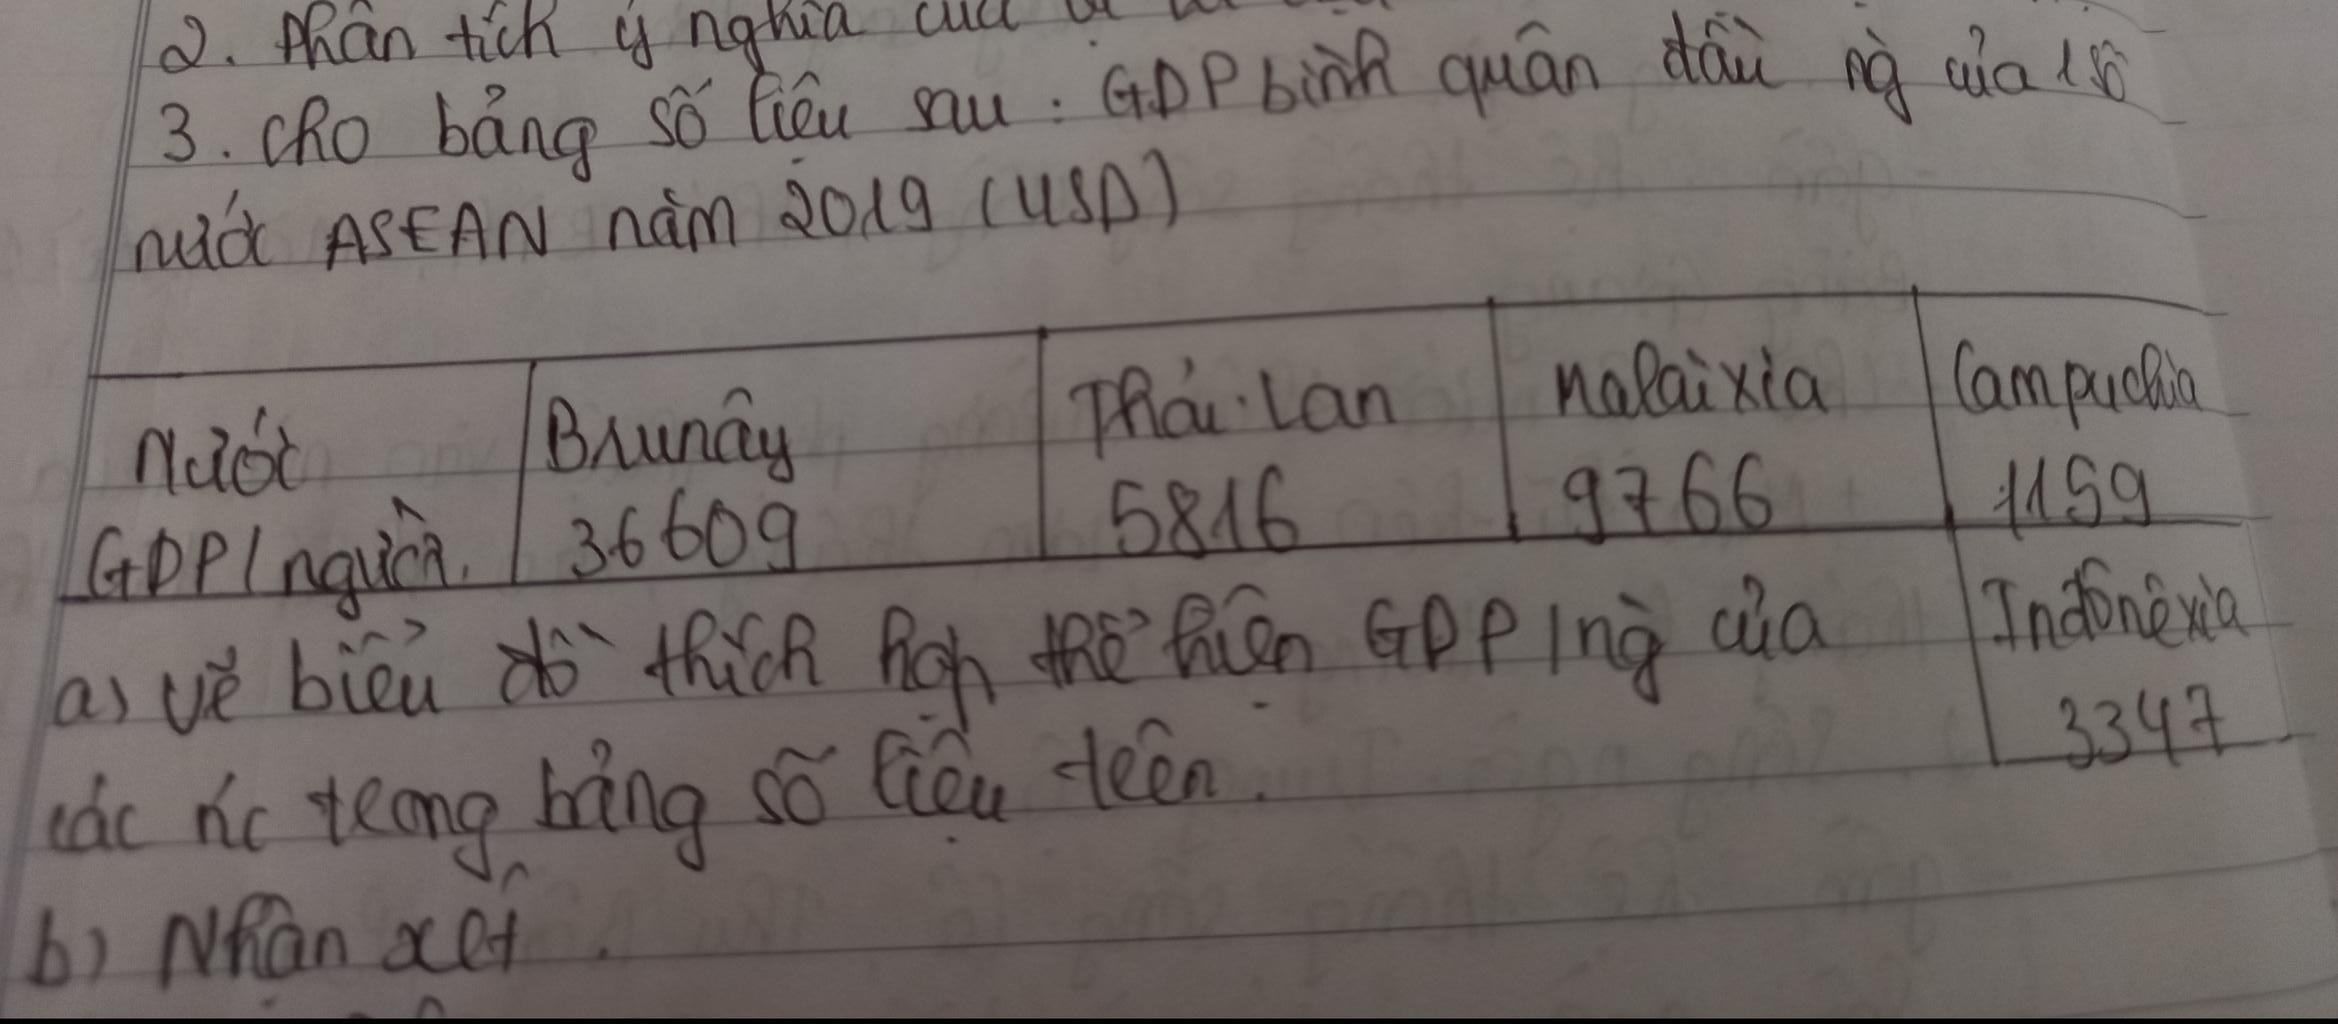 2. Phân tích ý nghĩa của
3. Cho bảng số liệu sau: GDP bình quân đầu ng` của 1 số
nước ASEAN năm 2019 (USD)
Nước Brunây Thái Lan Malaixia Campuchia
GDP/người. 36609 5816 9766 1159
a) vẽ biểu đồ thích hợp thể hiện GDP/ng` của Inđônêxia
3347
các nc trong bảng số liệu trên.
b) Nhận xét.